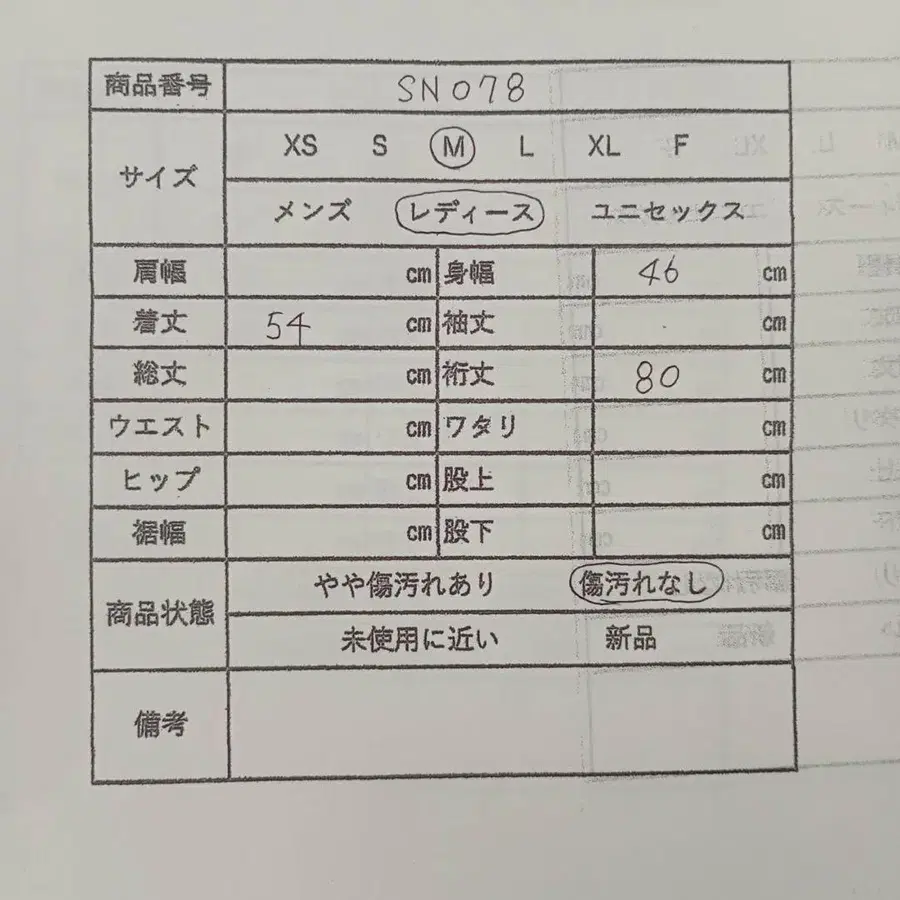 商品番号 SN078
サイズ XS S M L XL F
メンズ レディース ユニセックス
肩幅 cm 身幅 46 cm
着丈 54 cm 袖丈 cm
総丈 cm 裄丈 80 cm
ウエスト cm ワタリ cm
ヒップ cm 股上 cm
裾幅 cm 股下 cm
商品状態 やや傷汚れあり 傷汚れなし
未使用に近い 新品
備考